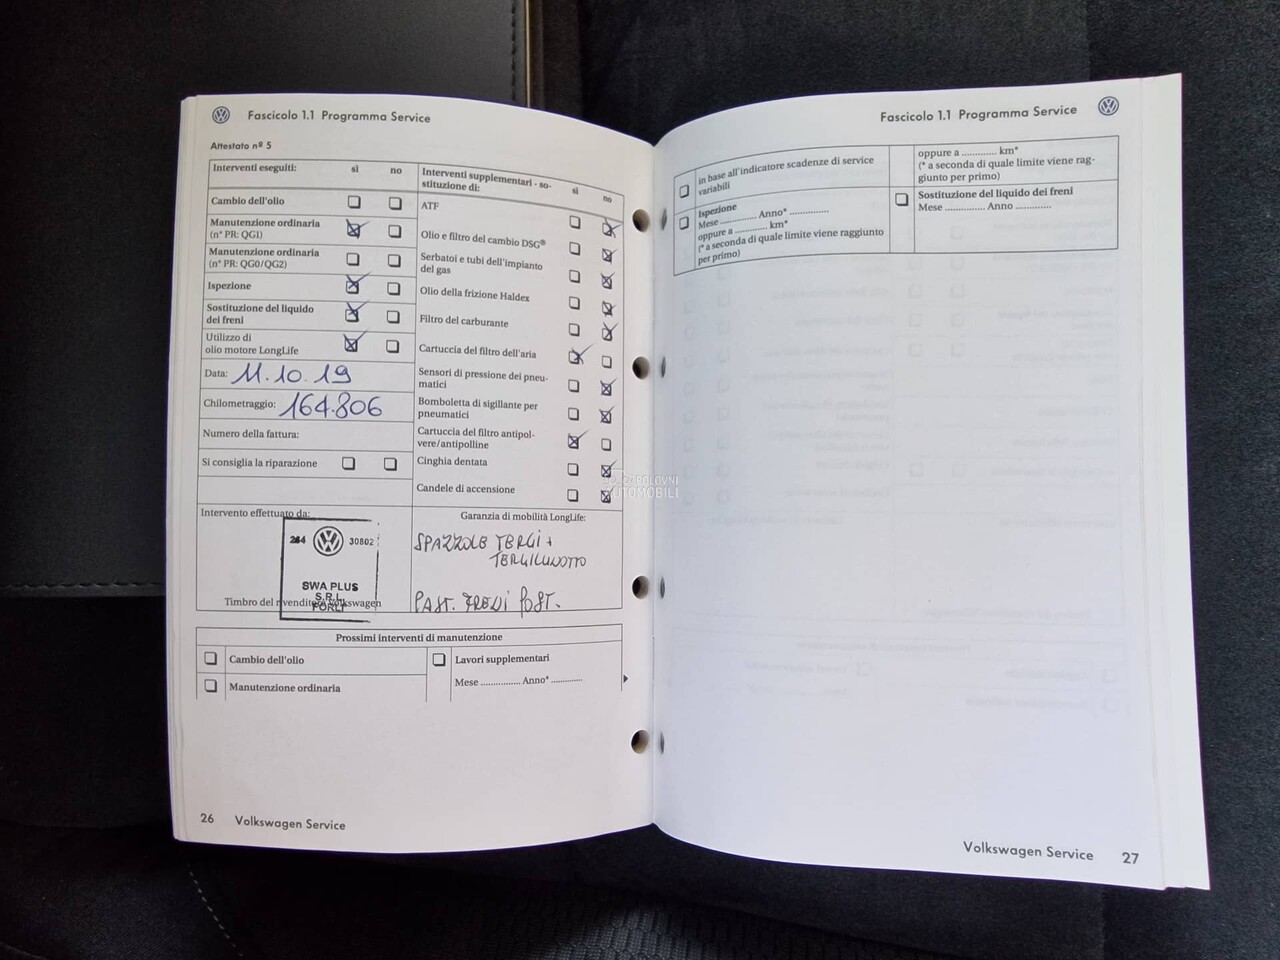 Fascicolo 1.1 Programma Service
Attestato nº 5
Interventi eseguiti: sì no
Cambio dell'olio
Manutenzione ordinaria
(n° PR: QG1)
Manutenzione ordinaria
(n° PR: QG0/QG2)
Ispezione
Sostituzione del liquido
dei freni
Utilizzo di
olio motore LongLife
Data: 11.10.19
Chilometraggio: 164.806
Numero della fattura:
Si consiglia la riparazione
Interventi supplementari - so-
stituzione di: sì no
ATF
Olio e filtro del cambio DSG®
Serbatoi e tubi dell'impianto
del gas
Olio della frizione Haldex
Filtro del carburante
Cartuccia del filtro dell'aria
Sensori di pressione dei pneu-
matici
Bomboletta di sigillante per
pneumatici
Cartuccia del filtro antipol-
vere/antipolline
Cinghia dentata
Candele di accensione
Intervento effettuato da:
264 30802
SWA PLUS
S.R.L.
FORLÌ
Timbro del rivenditore Volkswagen
Garanzia di mobilità LongLife:
SPAZZOLE TERGI +
TERGILUNOTTO
PAST. FRENI POST.
POLOVNI
AUTOMOBILI
Prossimi interventi di manutenzione
Cambio dell'olio
Manutenzione ordinaria
Lavori supplementari
Mese ................ Anno* .............
26 Volkswagen Service
Fascicolo 1.1 Programma Service
in base all'indicatore scadenze di service
variabili
Ispezione
Mese .............. Anno* ...............
oppure a .............. km*
(* a seconda di quale limite viene raggiunto
per primo)
oppure a ............. km*
(* a seconda di quale limite viene rag-
giunto per primo)
Sostituzione del liquido dei freni
Mese ............... Anno .............
Volkswagen Service 27